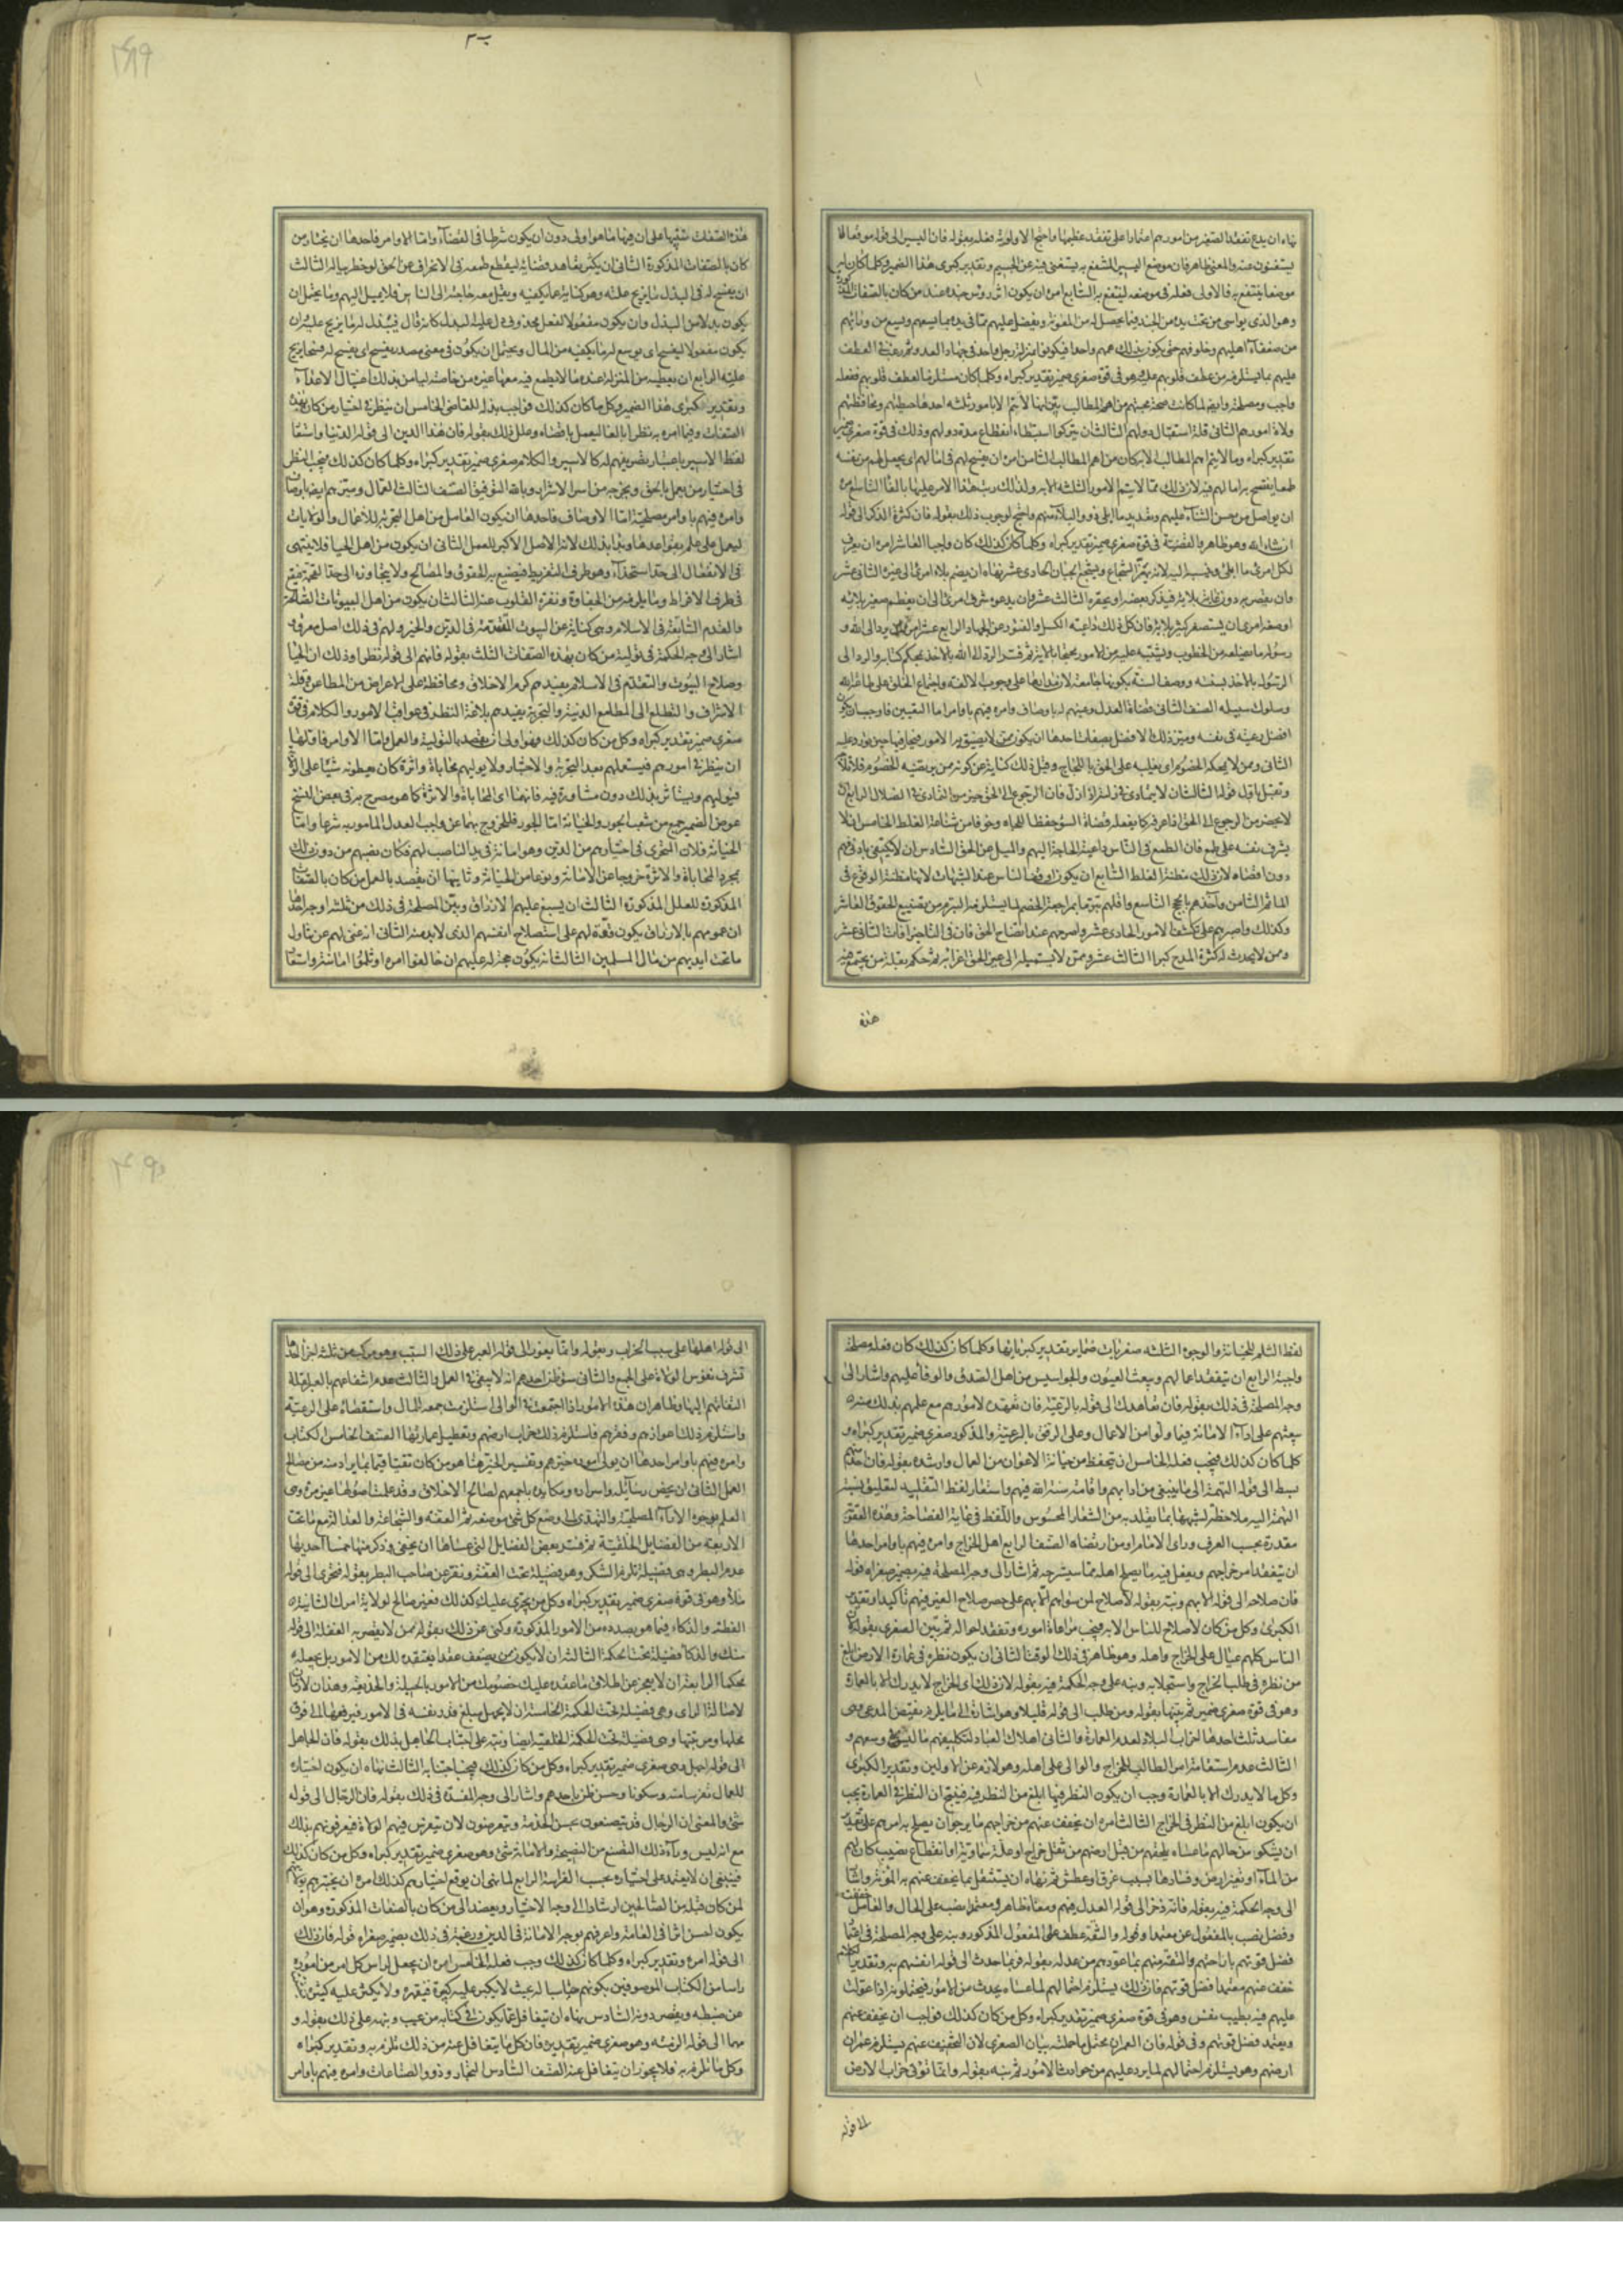 نهاه ان يدع تفقد الصغير من امورهم اعتمادا على تفقد عظيمها واحتج لاولوية فعله بقوله فان لليسير الى قوله موقعا لا
يستغنون عنه والمعنى ظاهر فان موضع اليسير المنتفع به يستغنى فيه عن الجسيم وتقدير كبرى هذا الضمير وكلما كان
موضعا ينتفع به فالاولى فعله في موضعه لينتفع به السابع امره ان يكون اثر رؤس جنده عنده من كان بالصفات
وهو الذى يواسى من تحت يده من الجند فيما يحصل له من المعونة ويفضل عليهم مما في يده بما يسعهم ويسع من ورائهم
من ضعفاء اهليهم وخلوفهم حتى يكون بذلك همهم واحدا فيكونوا بمنزلة رجل واحد في جهاد العدو
عليهم بما يستلزمه من عطف قلوبهم عليه وهو في قوة صغرى ضمير تقدير كبراه وكلما كان مستلزما لعطف قلوبهم ففعله
واجب ومصلحة
ولاة امورهم الثانى قلة استثقال دولهم الثالث ان يتركوا استبطاء انقطاع مدة دولهم وذلك في قوة صغرى
تقدير كبراه وما لا يتم اهم المطالب الا به كان من اهم المطالب الثامن امره ان يفسح لهم في امالهم اى يجعل لهم من نفسه
ان يواصل من حسن الثناء عليهم وتعديد ما ابلى ذوو البلاء منهم واحتج لوجوب ذلك بقوله فان كثرة الذكر الى قوله
ان شاء الله وهو ظاهر والقضية في قوة صغرى ضمير تقدير كبراه وكلما كان كذلك كان واجبا العاشر امره ان يعرف
لكل امرئ ما ابلى وينسبه اليه لانه يهز الشجاع ويشجع الجبان الحادى عشر نهاه ان يضم بلاء امرئ الى غيره الثانى عشر
وان يقصر به دون غاية بلائه فيذكر بعضه او يحقره الثالث عشر وان يدعوه شرف امرئ الى ان يعظم صغير بلائه
او ضعة امرئ ان يستصغر كبير بلائه فان كل ذلك داعية الكسل والفتور عن الجهاد الرابع عشر امره ان يرد الى الله و
رسوله ما يضلعه من الخطوب ويشتبه عليه من الامور محتجا بالاية ثم فسر الرد الى الله بالاخذ بمحكم كتابه والرد الى
الرسول بالاخذ بسنته ووصف السنة بكونها جامعة
وسلوك سبيله الصنف الثانى قضاة العدل وعينهم له باوصاف وامره فيهم باوامر اما التعيين فاوجب ان
افضل رعيته في نفسه وميز ذلك الافضل بصفات احدها ان يكون ممن لا تضيق به الامور فيحار فيها حين تورد عليه
الثانى وممن لا يمحكه الخصوم اى يغلبه على الحق باللجاج وقيل ذلك كناية عن كونه ممن يرتضيه الخصوم
لا يحصر من الرجوع الى الحق اذا عرفه كما يفعله قضاة السوء حفظا للجاه وخوفا من شناعة الغلط الخامس ان لا
يشرف نفسه على طمع فان الطمع في الناس داعية الحاجة اليهم والميل عن الحق السادس ان لا يكتفى بادنى فهم
دون اقصاه لان ذلك مظنة الغلط السابع ان يكون اوقف الناس عند الشبهات لانها مظنة الوقوع في
الماثم الثامن وآخذهم بالحجج التاسع واقلهم تبرما بمراجعة الخصم لما يستلزمه التبرم من تضييع الحقوق العاشر
وكذلك واصبرهم على تكشف الامور الحادى عشر واصرمهم عند اتضاح الحق فان في التاخير افات الثانى عشر
وممن لا يحدث له كثرة المدح كبرا الثالث عشر وممن لا يستميله الى غير الحق اغراء ثم حكم بقلة من يجتمع فيه
هذه
هذه الصفات تنبيها على ان فيها ما هو اولى دون ان يكون شرطا في القضاء واما الاوامر فاحدها ان يختار من
كان بالصفات المذكورة الثانى ان يكثر تعاهد قضائه ليقطع طمعه في الانحراف عن الحق لو خطر بباله الثالث
ان يفسح له في البذل ما يزيح علته وهو كناية عما يكفيه وتقل معه حاجته الى الناس فلا يميل اليهم وما يحتمل ان
يكون بدلا من البذل وان يكون مفعولا لفعل محذوف دل عليه البذل كانه قال فيبذل له ما يزيح علته وان
يكون مفعولا ليفسح اى يوسع له ما يكفيه من المال ويحتمل ان يكون في معنى مصدر يفسح اى يفسح له فسحا يزيح
علته الرابع ان يعطيه من المنزلة عنده ما لا يطمع فيه معها غيره من خاصته ليامن بذلك اغتيال الاعداء
وتقدير كبرى هذا الضمير وكل ما كان كذلك فواجب بذله للقاضى الخامس ان ينظر في اختيار من كان بهذه
الصفات وفيما امره به نظرا بالغا ليعمل باقصاه وعلل ذلك بقوله فان هذا الدين الى قوله الدنيا واستعار
لفظ الاسير باعتبار تصريفهم له كالاسير والكلام صغرى ضمير تقدير كبراه وكلما كان كذلك فيجب النظر
في اختيار من يعمل بالحق ويخرجه من اسر الاشرار وبالله التوفيق الصنف الثالث العمال وميزهم ايضا باوصاف
وامره فيهم باوامر مصلحية اما الاوصاف فاحدها ان يكون العامل من اهل التجربة للاعمال والولايات
ليعمل على علم بقواعدها وبدا بذلك لانه الاصل الاكبر للعمل الثانى ان يكون من اهل الحيا فلا ينتهى
في الانفعال الى حد استخذاء وهو طرف التفريط فيضيع به الحقوق والمصالح ولا يتجاوزه الى حد القحة فيقع
في طرف الافراط وما يلزمه من الجفاوة ونفرة القلوب عنه الثالث ان يكون من اهل البيوتات الصالحة
والقدم السابقة في الاسلام وهى كناية عن البيوت المتقدمة في الدين والخير ولهم في ذلك اصل معروف
اشار الى وجه الحكمة في تولية من كان بهذه الصفات الثلث بقوله فانهم الى قوله نظرا وذلك ان الحيا
وصلاح البيوت والتقدم في الاسلام يفيدهم كرم الاخلاق ومحافظة على الاعراض من المطاعن وقلة
الاشراف والتطلع الى المطامع الدنية والتجربة يفيدهم بلاغة النظر في عواقب الامور والكلام في قوة
صغرى ضمير تقدير كبراه وكل من كان كذلك فهو اولى ان يقصد بالتولية والعمل واما الاوامر فاولها
ان ينظر في امورهم فيستعملهم بعد التجربة والاختبار ولا يوليهم محاباة واثرة كان يعطونه شيئا على
فيوليهم ويستاثر بذلك دون مشاورة فيه فانهما اى المحاباة والاثرة كما هو مصرح به في بعض النسخ
عوض الضمير جمع من شعب الجور والخيانة اما الجور فللخروج بهما عن واجب العدل المامور به شرعا واما
الخيانة فلان التحرى في اختيارهم من الدين وهو امانة في يد الناصب لهم فكان نصبهم من دون ذلك
بمجرد المحاباة والاثرة خروجا عن الامانة ونوعا من الخيانة وثانيها ان يقصد بالعمل من كان بالصفات
المذكورة للعلل المذكورة الثالث ان يسبغ عليهم الارزاق وبين المصلحة في ذلك من ثلثة اوجه احدها
ان عمومهم بالارزاق يكون قوة لهم على استصلاح انفسهم الذى لا بد منه الثانى انه غنى لهم عن تناول
ما تحت ايديهم من مال المسلمين الثالث انه يكون حجة له عليهم ان خالفوا امره او ثلموا امانته واستعار
لفظ الثلم للخيانة والوجوه الثلثة صغريات ضماير تقدير كبرياتها وكلما كان كذلك كان فعله مصلحة
واجبة الرابع ان يتفقد اعمالهم ويبعث العيون والجواسيس من اهل الصدق والوفا عليهم واشار الى
وجه المصلحة في ذلك بقوله فان تعاهدك الى قوله بالرعية فان تعهده لامورهم مع علمهم بذلك منه
يبعثهم على اداء الامانة فيما ولوا من الاعمال وعلى الرفق بالرعية والمذكور صغرى ضمير تقدير كبراه و
كلما كان كذلك فيجب فعله الخامس ان يتحفظ من خيانة الاعوان من العمال وارشده بقوله فان احد منهم
بسط الى قوله التهمة الى ما ينبغى من ادابهم واقامة سنة الله فيهم واستعار لفظ التقليد لتعليق نسبة
التهمة اليه ملاحظة لشبهها بما يقلد به من الشعار المحسوس واللفظ في غاية الفصاحة وهذه العقوبة
مقدرة بحسب العرف وراى الامام او من ارتضاه الصنف الرابع اهل الخراج وامره فيهم باوامر احدها
ان يتفقد امر خراجهم ويفعل فيه ما يصلح اهله مما سيشرحه ثم اشار الى وجه المصلحة فيه بضمير صغراه قوله
فان صلاحه الى قوله الا بهم ونبه بقوله لا صلاح لمن سواهم الا بهم على حصر صلاح الغير فيهم تاكيدا وتقدير
الكبرى وكل من كان لا صلاح للناس الا به فيجب مراعاة اموره وتفقد احواله ثم بين الصغرى بقوله لان
الناس كلهم عيال على الخراج واهله وهو ظاهر في ذلك الوقت الثانى ان يكون نظره في عمارة الارض ابلغ
من نظره في طلب الخراج واستجلابه ونبه على وجه الحكمة فيه بقوله لان ذلك اى الخراج لا يدرك الا بالعمارة
وهو في قوة صغرى ضمير ثم بينها بقوله ومن طلب الى قوله قليلا وهو اشارة الى ما يلزم نقيض المدعى وهى
مفاسد ثلث احدها اخراب البلاد لعدم العمارة والثانى اهلاك العباد لتكليفهم ما ليس في وسعهم و
الثالث عدم استقامة امر الطالب للخراج والوالى على اهله وهو لازم عن الاولين وتقدير الكبرى
وكل ما لا يدرك الا بالعمارة وجب ان يكون النظر فيها ابلغ من النظر فيه فينتج ان النظر في العمارة يجب
ان يكون ابلغ من النظر في الخراج الثالث امره ان يخفف عنهم من خراجهم ما يرجو ان يصلح به امرهم على تقدير
ان يشكوا من حالهم ما عساه يلحقهم من قبل ارضهم من ثقل خراج او علة سماوية او انقطاع نصيب كان لهم
من الماء او تغير ارض وفسادها بسبب غرق او عطش ثم نهاه ان يستثقل ما خفف عنهم به المؤنة واشار
الى وجه الحكمة فيه بقوله فانه ذخر الى قوله العدل فيهم ومعناه ظاهر ومعتمدا نصب على الحال والعامل
وفضل نصب بالمفعول عن معتمدا وقوله والثقة عطف على المفعول المذكور ونبه على وجه المصلحة في
فضل قوتهم باراحتهم والثقة منهم بما عودهم من عدله بقوله فربما حدث الى قوله انفسهم به وتقدير
خفف عنهم معتمدا فضل قوتهم فان ذلك يستلزم احتمالهم لما عساه يحدث من الامور فيحتملونه اذا عولت
عليهم فيه بطيب نفس وهو في قوة صغرى ضمير تقدير كبراه وكل من كان كذلك فواجب ان يخفف عنهم
ويعتمد فضل قوتهم وفي قوله فان العمران محتمل ما حملته بيان الصغرى لان التخفيف عنهم يستلزم عمران
ارضهم وهو يستلزم احتمالهم لما يرد عليهم من حوادث الامور ثم نبه بقوله وانما يؤتى خراب الارض
الى قوله
الى قوله اهلها على سبب الخراب وبقوله وانما يعوز الى قوله العبر على ذلك السبب وهو مركب من ثلثة اجزا احدها
تشرف نفوس الولاة على الجمع والثانى سوء ظن احدهم انه لا يبقى في العمل والثالث عدم انتفاعهم بالعبر لقلة
التفاتهم اليها وظاهر ان هذه الامور اذا اجتمعت في الوالى استلزمت جمعه المال واستقصاءه على الرعية
واستلزم ذلك اعوازهم وفقرهم فاستلزم ذلك خراب ارضهم وتعطيل عمارتها الصنف الخامس الكتاب
وامره فيهم باوامر احدها ان يولى اموره خيرهم وتفسير الخير هنا هو من كان تقيا قيما بما يراد منه من مصالح
العمل الثانى ان يخص رسائله واسراره ومكايده باجمعهم لصالح الاخلاق وقد علمت اصولها غير مرة وهى
العلم بوجوه الاراء المصلحية والتهدى الى وضع كل شئ موضعه ثم العفة والشجاعة والعدالة مع ما تحت
الاربعة من الفضايل الخلقية ثم فسر بعض الفضايل التى عساها ان يخفى فذكر منها خمسا احديها
عدم البطر وهى فضيلة تلزم الشكر وهو فضيلة تحت العفة ونفر عن صاحب البطر بقوله فيجترى الى قوله
ملاء وهو في قوة صغرى ضمير تقدير كبراه وكل من يجترى عليك كذلك فغير صالح لولاية امرك الثانية
الفطنة والذكاء فيما هو بصدده من الامور المذكورة وكنى عن ذلك بقوله ممن لا يقصر به الغفلة الى قوله
منك والذكاء فضيلة تحت الحكمة الثالثة ان لا يكون من يضعف عقدا يعتقده لك من الامور بل يجعله
محكما الرابعة ان لا يعجز عن اطلاق ما عقده عليك خصومك من الامور بالحيلة والخديعة وهذان لازمان
لاصالة الراى وهى فضيلة تحت الحكمة الخامسة ان لا يجهل مبلغ قدر نفسه في الامور فيرفعها الى فوق
محلها ومرتبتها وهى فضيلة تحت الحكمة الخلقية ايضا ونبه على اجتناب الجاهل بذلك بقوله فان الجاهل
الى قوله اجهل وهى صغرى ضمير تقدير كبراه وكل من كان كذلك فيجب اجتنابه الثالث نهاه ان يكون اختياره
للعمال تفرسا منه وسكونا وحسن ظن باحدهم واشار الى وجه المفسدة في ذلك بقوله فان الرجال الى قوله
شئ والمعنى ان الرجال قد يتصنعون بحسن الخدمة ويتعرضون لان يتفرس فيهم الولاة فيعرفونهم بذلك
مع انه ليس وراء ذلك التصنع من النصيحة والامانة شئ وهو صغرى ضمير تقدير كبراه وكل من كان كذلك
فينبغى ان لا يعتمد على اختياره بحسب الفراسة الرابع لما نهى ان يوقع اختيارهم كذلك امره ان يختبرهم
لمن كان قبله من الصالحين ارشادا الى وجه الاختيار ويعمد الى من كان بالصفات المذكورة وهو ان
يكون احسن اثرا في العامة واعرفهم بوجه الامانة في الدين ورغبه في ذلك بضمير صغراه قوله فان ذلك
الى قوله امره وتقدير كبراه وكلما كان كذلك وجب فعله الخامس امره ان يجعل لراس كل امر من اموره
راسا من الكتاب الموصوفين بكونهم مناسبا له بحيث لا يكبر عليه كبيره فيقهره ولا يكثر عليه كثيره
عن ضبطه ويقصر دونه السادس نهاه ان يتغافل عما يكون في كتابه من عيب ونبهه على ذلك بقوله و
مهما الى قوله الزمته وهو صغرى ضمير تقديره فان كل ما يتغافل عنه من ذلك تلزم به وتقدير كبراه
وكل ما تلزم به فلا يجوز ان يتغافل عنه الصنف السادس التجار وذوو الصناعات وامره فيهم باوامر